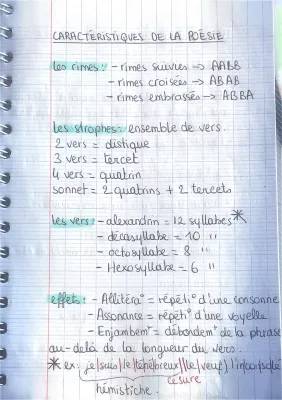 CARACTÉRISTIQUES DE LA POÉSIE
les rimes: - rimes suivies -> AABB
- rimes croisées -> ABAB
- rimes embrassés -> ABBA
les strophes: ensemble de vers.
2 vers = distique
3 vers = tercet
4 vers = quatrin
sonnet = 2 quatrins + 2 tercets
les vers: - alexandrin = 12 syllabes *
- décasyllabe = 10 "
- octosyllabe = 8 "
- Hexosyllabe = 6 "
effets: - Allitéra° = répéti° d'une consonne
- Assonance = répét° d'une voyelle
- Enjambemt = débordemt de la phrase
au-delà de la longueur du vers.
* ex: je/suis/le/ténébreux//le/veuf/l'inconsolé
hémistiche. césure